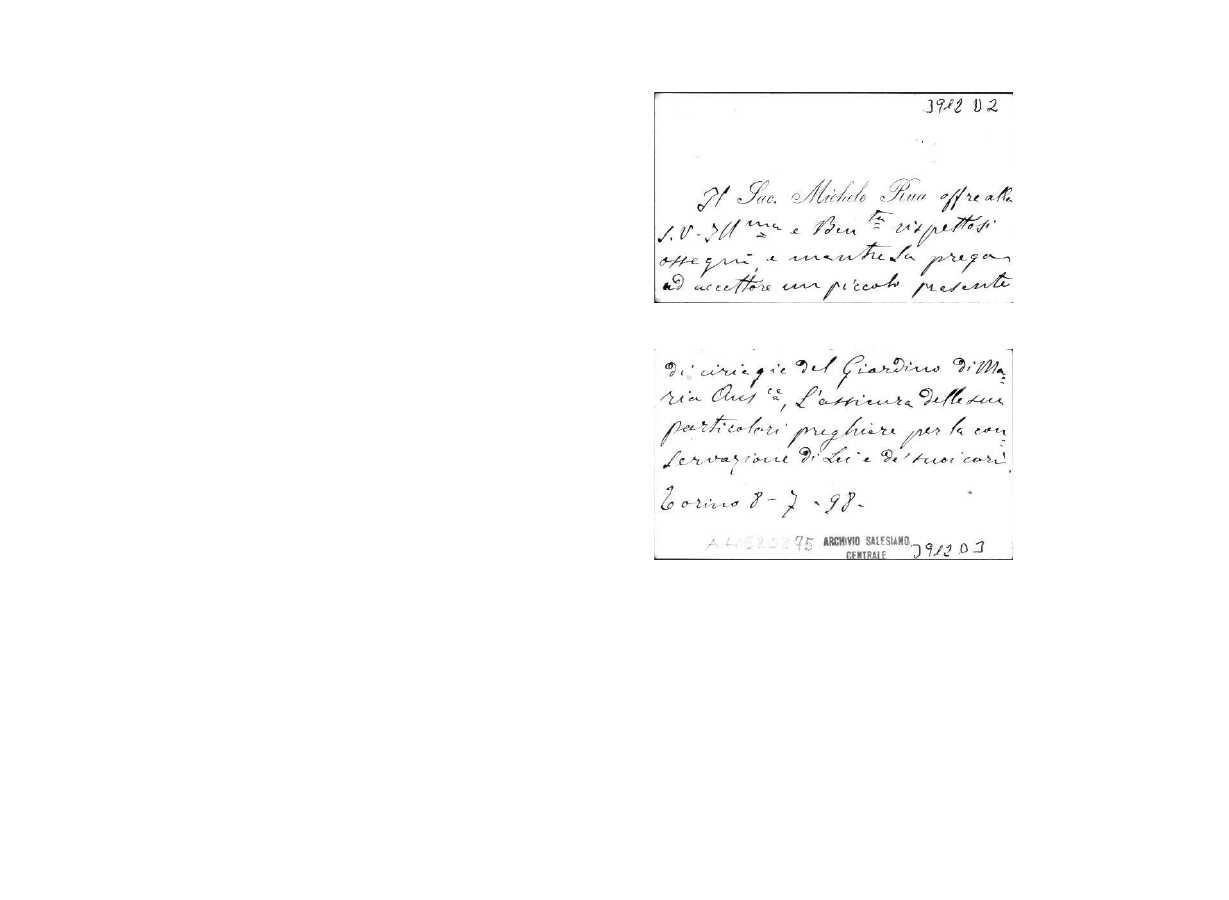 3912 D 2
Il Sac. Michele Rua offre alla
S.V. Ill ma e Ben ta rispettosi
ossequi, e mentre La prega
ad accettare un piccolo presente
di ciriegie del Giardino di Ma=
ria Aus ce, L'assicura delle sue
particolari preghiere per la con=
servazione di Lei e de' suoi cari.
Torino 8 - 7 - 98.
ARCHIVIO SALESIANO
CENTRALE
3912 D 3